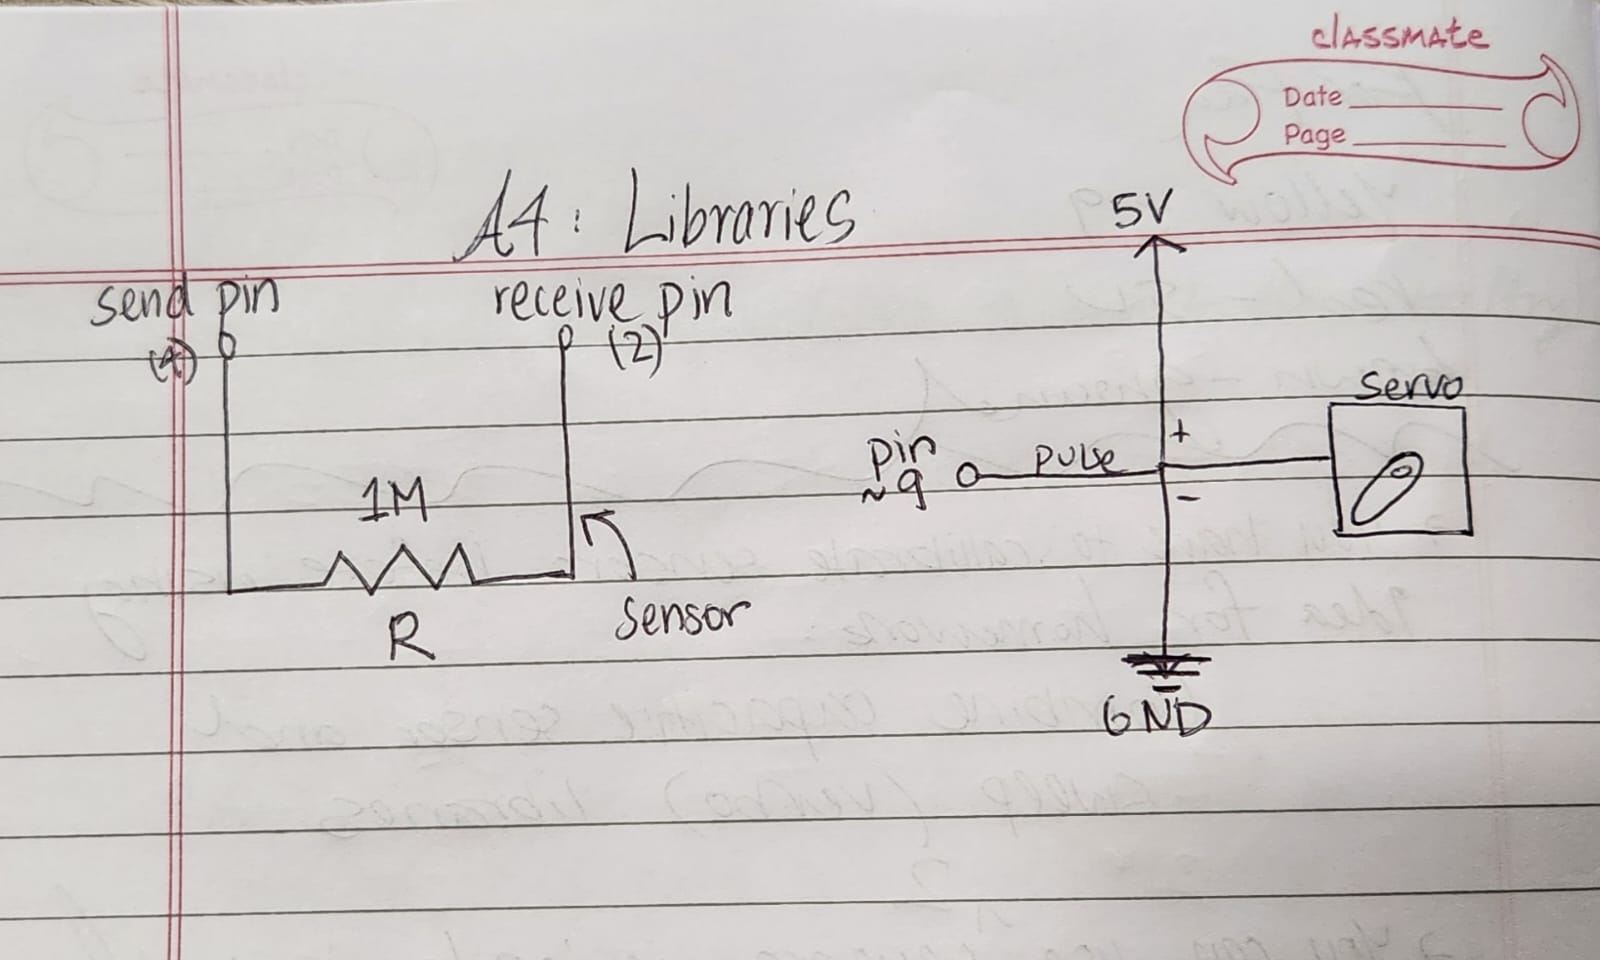 classmate
Date
Page
A4: Libraries
5V
send pin
(4)
receive pin
(2)
1M
R
Sensor
pin
~9
pulse
+
-
servo
GND